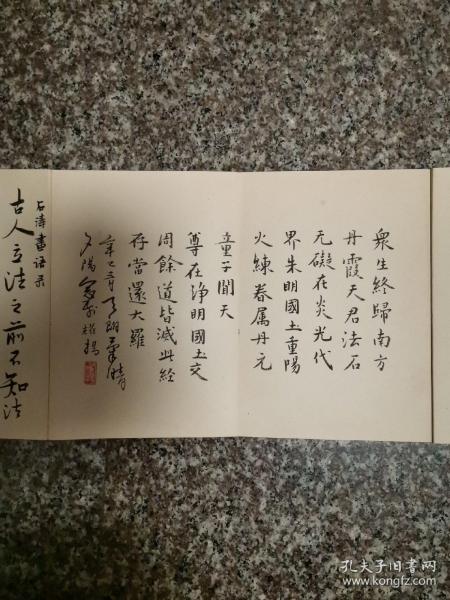 衆生終歸南方
丹霞天君法石
无礙在炎光代
界朱明國土重陽
火練眷属丹元
童子聞天
尊在浄明國土交
周餘道皆滅此經
存當還大羅
辛巳
夕陽
石濤畫語录
古人立法之前不知法
孔夫子旧书网
www.kongfz.com